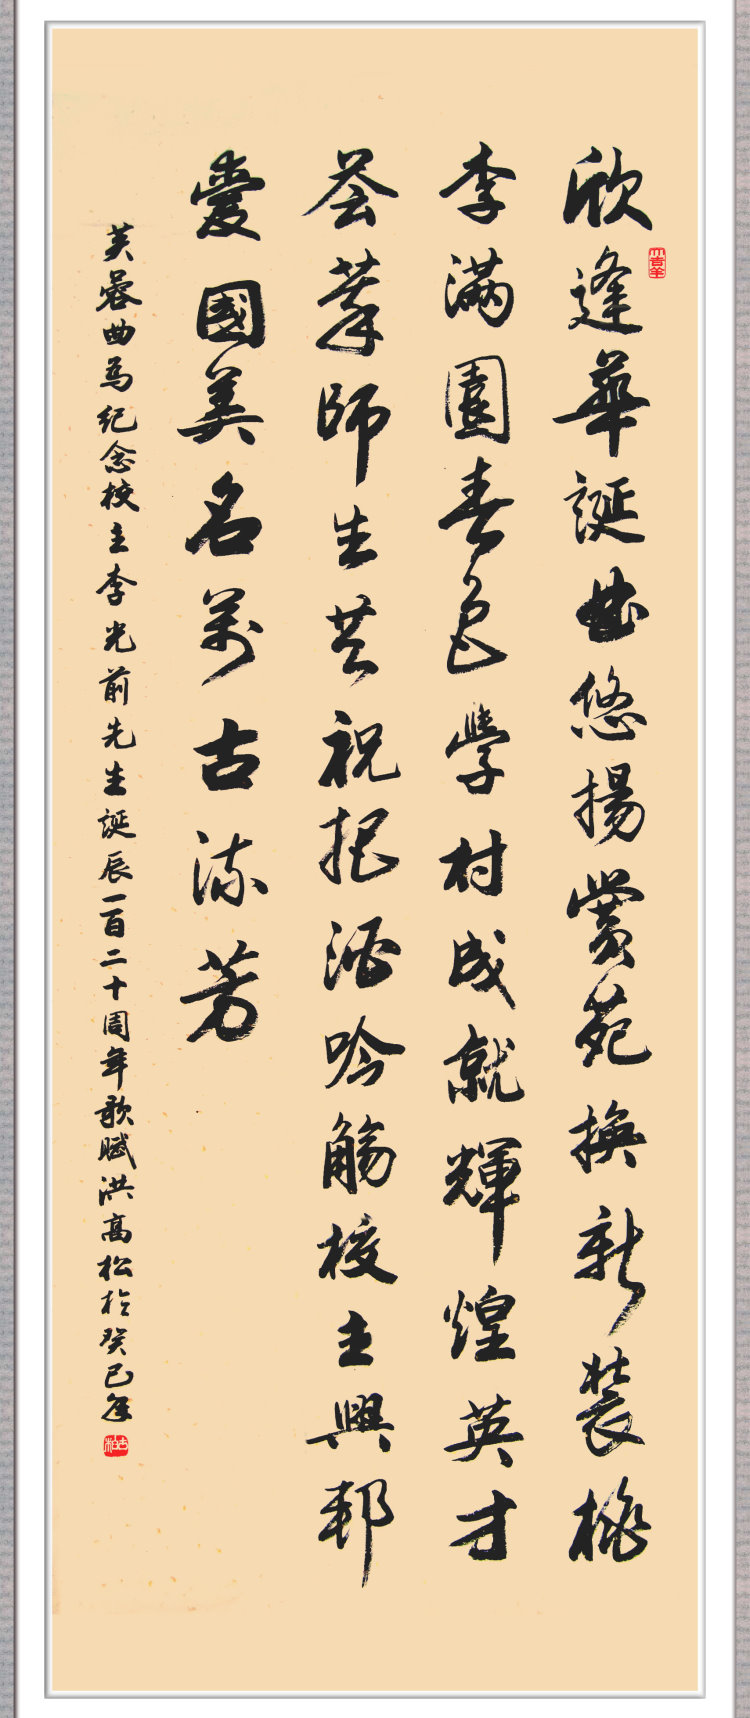 欣逢華誕曲悠揚黌苑換新裝桃
李滿園春色學村成就輝煌英才
荟萃師生共祝把酒吟觴校主興邦
愛國美名萬古流芳
芙蓉曲為紀念校主李光前先生誕辰一百二十周年歌賦洪高松於癸巳年